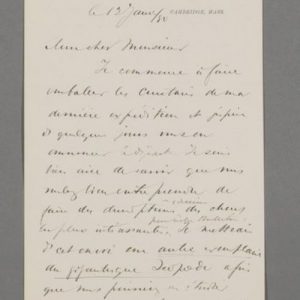 CAMBRIDGE, MASS.
le 12 Janv/
Mon cher Monsieur
Je commence à faire
emballer les Crustacés de ma
dernière expédition et j'espère
d'ici quelques jours vous en
annoncer le départ. Je suis
bien aise de savoir que vous
voulez bien entreprendre de
faire des descriptions des choses
plus intéressantes. Je mettrai
cet envoi un autre exemplaire
du gigantesque Isopode afin
que vous puissiez en